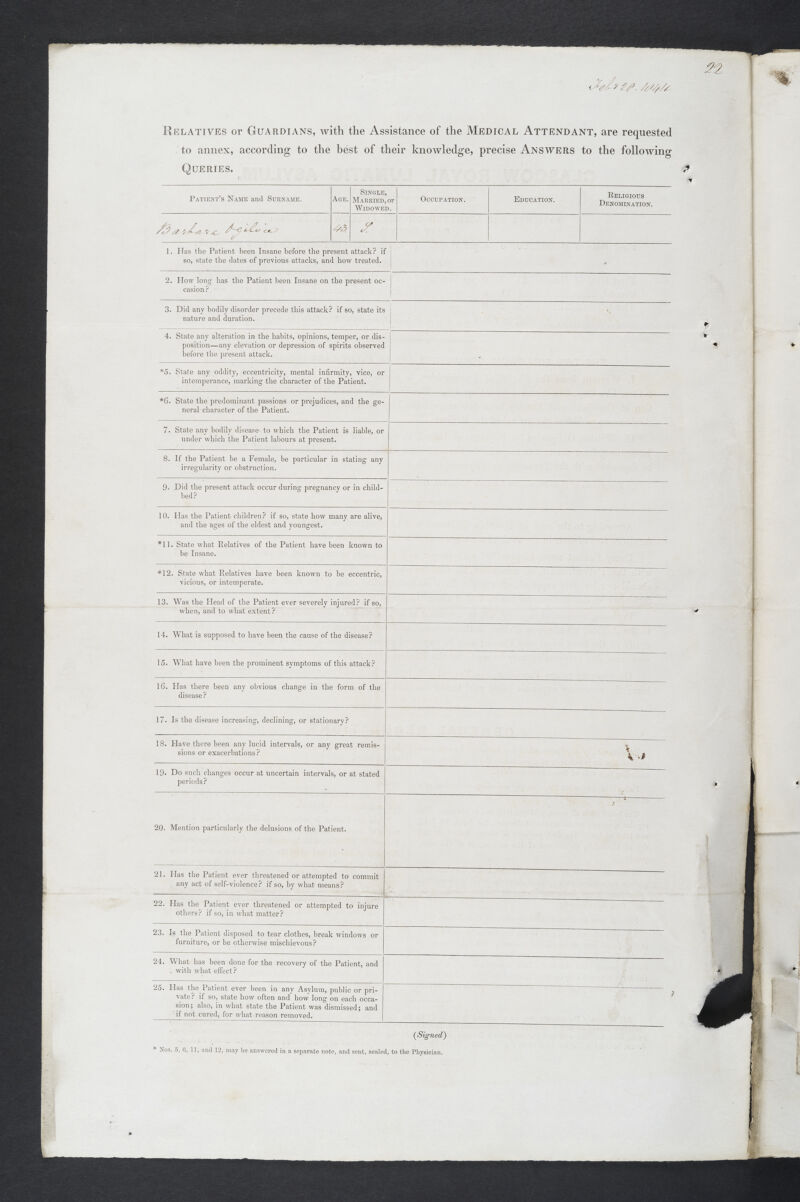 22
Feby 28. 1844
RELATIVES or GUARDIANS, with the Assistance of the MEDICAL ATTENDANT, are requested
to annex, according to the best of their knowledge, precise ANSWERS to the following
QUERIES.
PATIENT'S NAME and SURNAME.
AGE.
SINGLE,
MARRIED, or
WIDOWED.
OCCUPATION.
EDUCATION.
RELIGIOUS
DENOMINATION.
Barbara Ogilvie
43
S.
1. Has the Patient been Insane before the present attack? if
so, state the dates of previous attacks, and how treated.
2. How long has the Patient been Insane on the present oc-
casion?
3. Did any bodily disorder precede this attack? if so, state its
nature and duration.
4. State any alteration in the habits, opinions, temper, or dis-
position—any elevation or depression of spirits observed
before the present attack.
*5. State any oddity, eccentricity, mental infirmity, vice, or
intemperance, marking the character of the Patient.
*6. State the predominant passions or prejudices, and the ge-
neral character of the Patient.
7. State any bodily disease to which the Patient is liable, or
under which the Patient labours at present.
8. If the Patient be a Female, be particular in stating any
irregularity or obstruction.
9. Did the present attack occur during pregnancy or in child-
bed?
10. Has the Patient children? if so, state how many are alive,
and the ages of the eldest and youngest.
*11. State what Relatives of the Patient have been known to
be Insane.
*12. State what Relatives have been known to be eccentric,
vicious, or intemperate.
13. Was the Head of the Patient ever severely injured? if so,
when, and to what extent?
14. What is supposed to have been the cause of the disease?
15. What have been the prominent symptoms of this attack?
16. Has there been any obvious change in the form of the
disease?
17. Is the disease increasing, declining, or stationary?
18. Have there been any lucid intervals, or any great remis-
sions or exacerbations?
19. Do such changes occur at uncertain intervals, or at stated
periods?
20. Mention particularly the delusions of the Patient.
21. Has the Patient ever threatened or attempted to commit
any act of self-violence? if so, by what means?
22. Has the Patient ever threatened or attempted to injure
others? if so, in what matter?
23. Is the Patient disposed to tear clothes, break windows or
furniture, or be otherwise mischievous?
24. What has been done for the recovery of the Patient, and
with what effect?
25. Has the Patient ever been in any Asylum, public or pri-
vate? if so, state how often and how long on each occa-
sion; also, in what state the Patient was dismissed; and
if not cured, for what reason removed.
(Signed)
* Nos. 5, 6, 11, and 12, may be answered in a separate note, and sent, sealed, to the Physician.